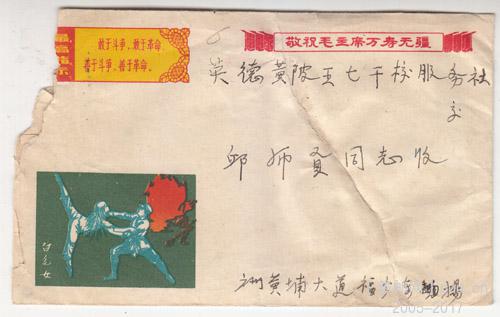 最高指示
敢于斗争，敢于革命，
善于斗争，善于革命。
敬祝毛主席万寿无疆
英德黄陂五七干校服务社
交
邱 贤同志收
白毛女
黄埔大道
2005-2017